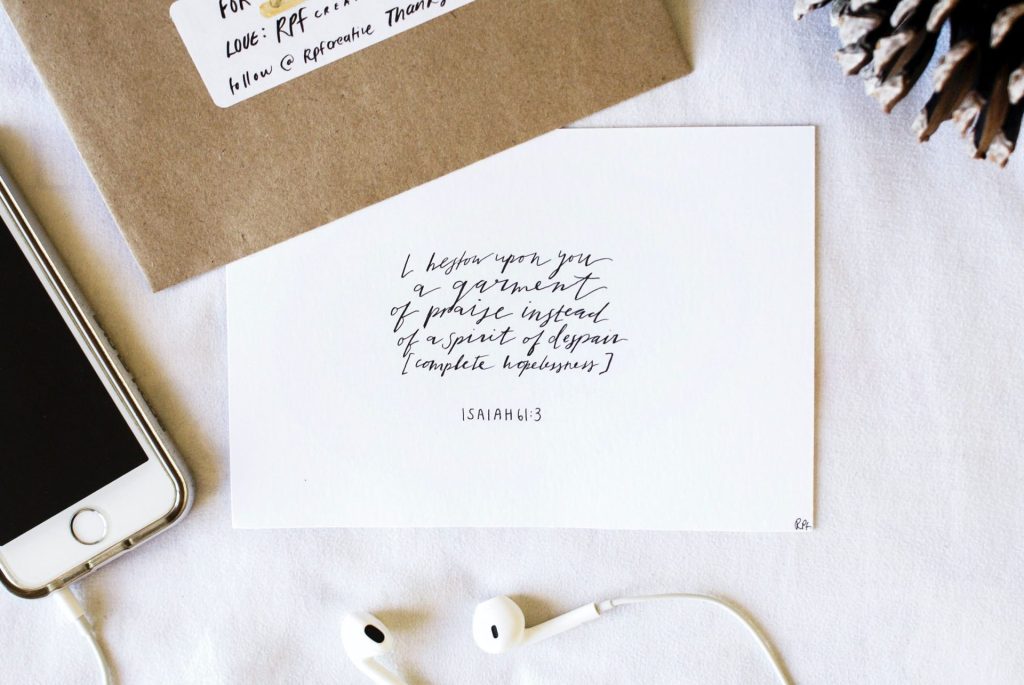 FOR
LOVE: RPF CREA
follow @ Rpfcreative Thank
I bestow upon you
a garment
of praise instead
of a spirit of despair
[complete hopelessness]
ISAIAH 61:3
RPF